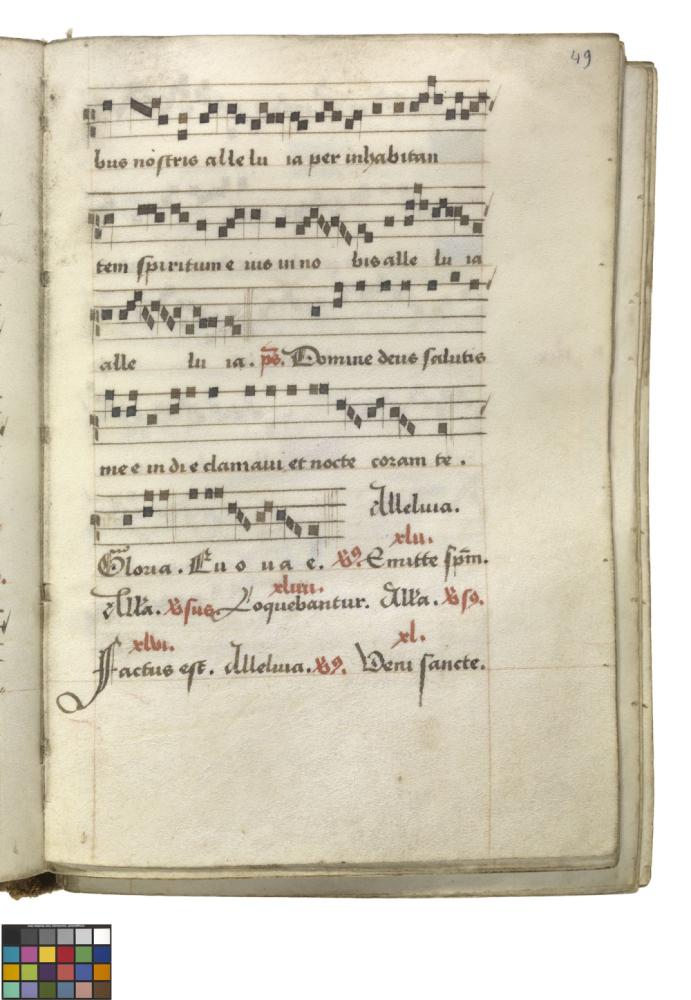 49
bus nostris alle lu ia per inhabitan
tem spiritum e ius in no bis alle lu ia
alle lu ia. ps. Domine deus salutis
me e in di e clamaui et nocte coram te.
Alleluia.
xlii.
Gloria. Eu o ua e. Emitte spm.
xliiii.
All'a. Loquebantur. All'a.
xlvi. xl.
Factus est. Alleluia. Veni sancte.